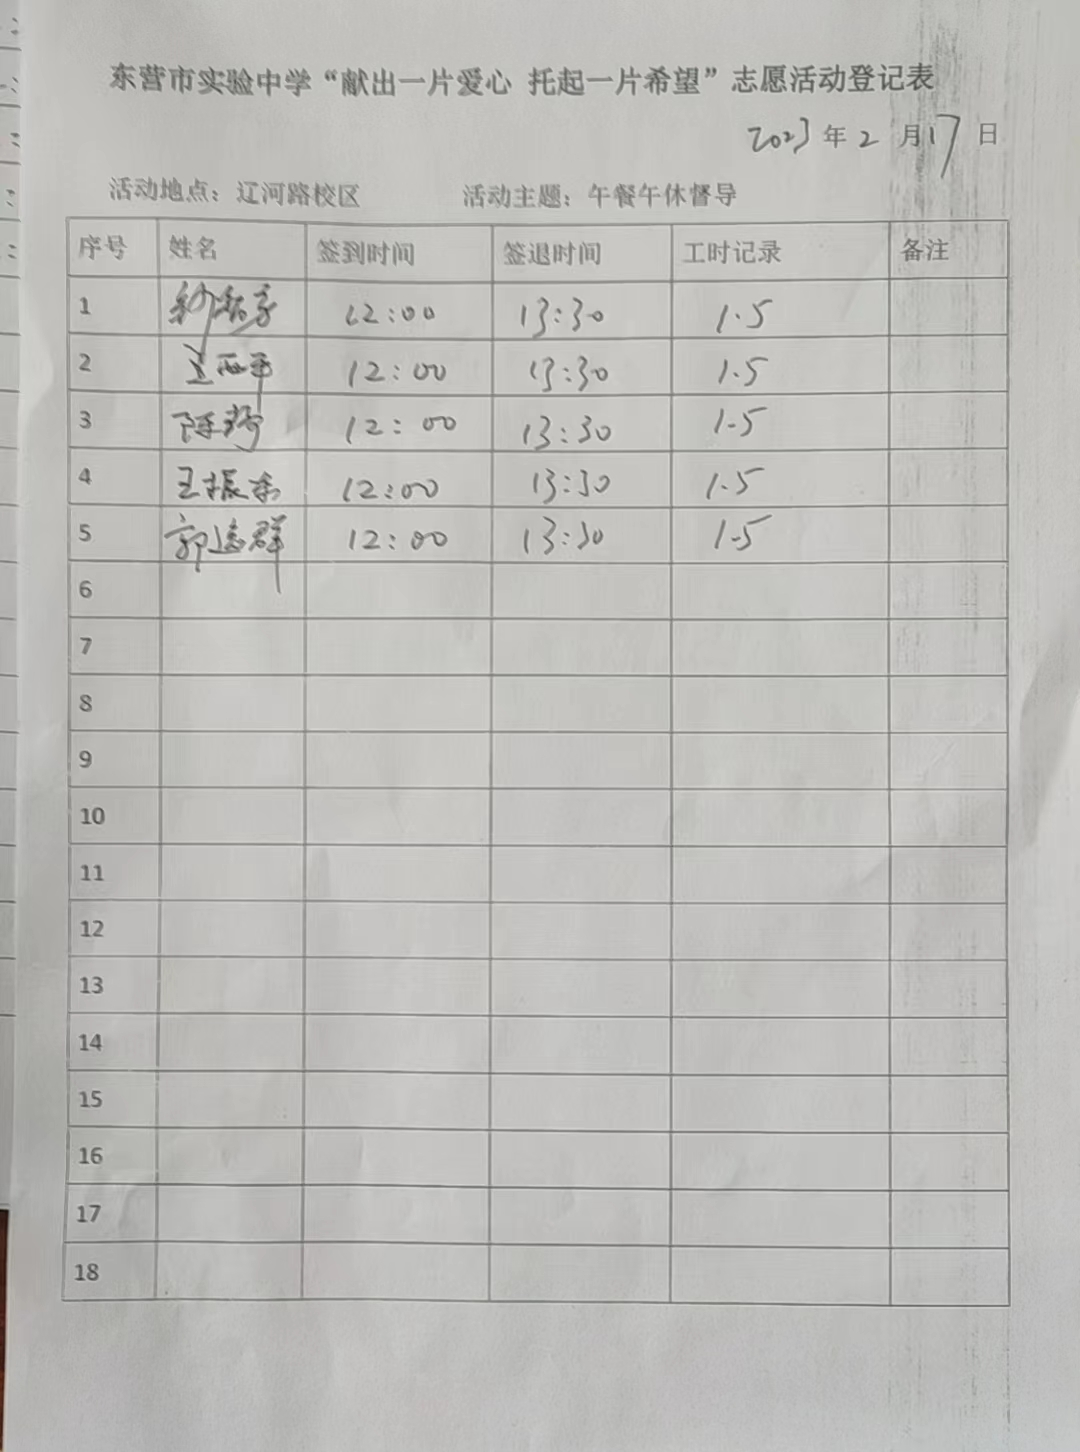 东营市实验中学“献出一片爱心 托起一片希望”志愿活动登记表
2023年2月17日
活动地点：辽河路校区 活动主题：午餐午休督导
序号 姓名 签到时间 签退时间 工时记录 备注
1 12:00 13:30 1.5
2 12:00 13:30 1.5
3 陈 12:00 13:30 1.5
4 王振东 12:00 13:30 1.5
5 郭 群 12:00 13:30 1.5
6
7
8
9
10
11
12
13
14
15
16
17
18